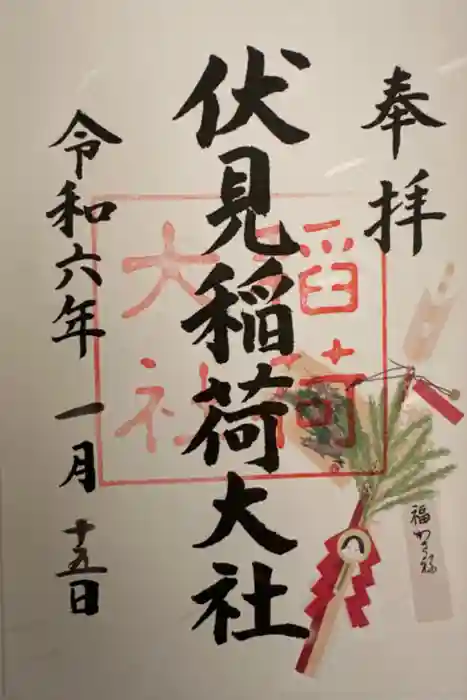 奉拝
伏見稲荷大社
稲荷
大社
令和六年一月十五日